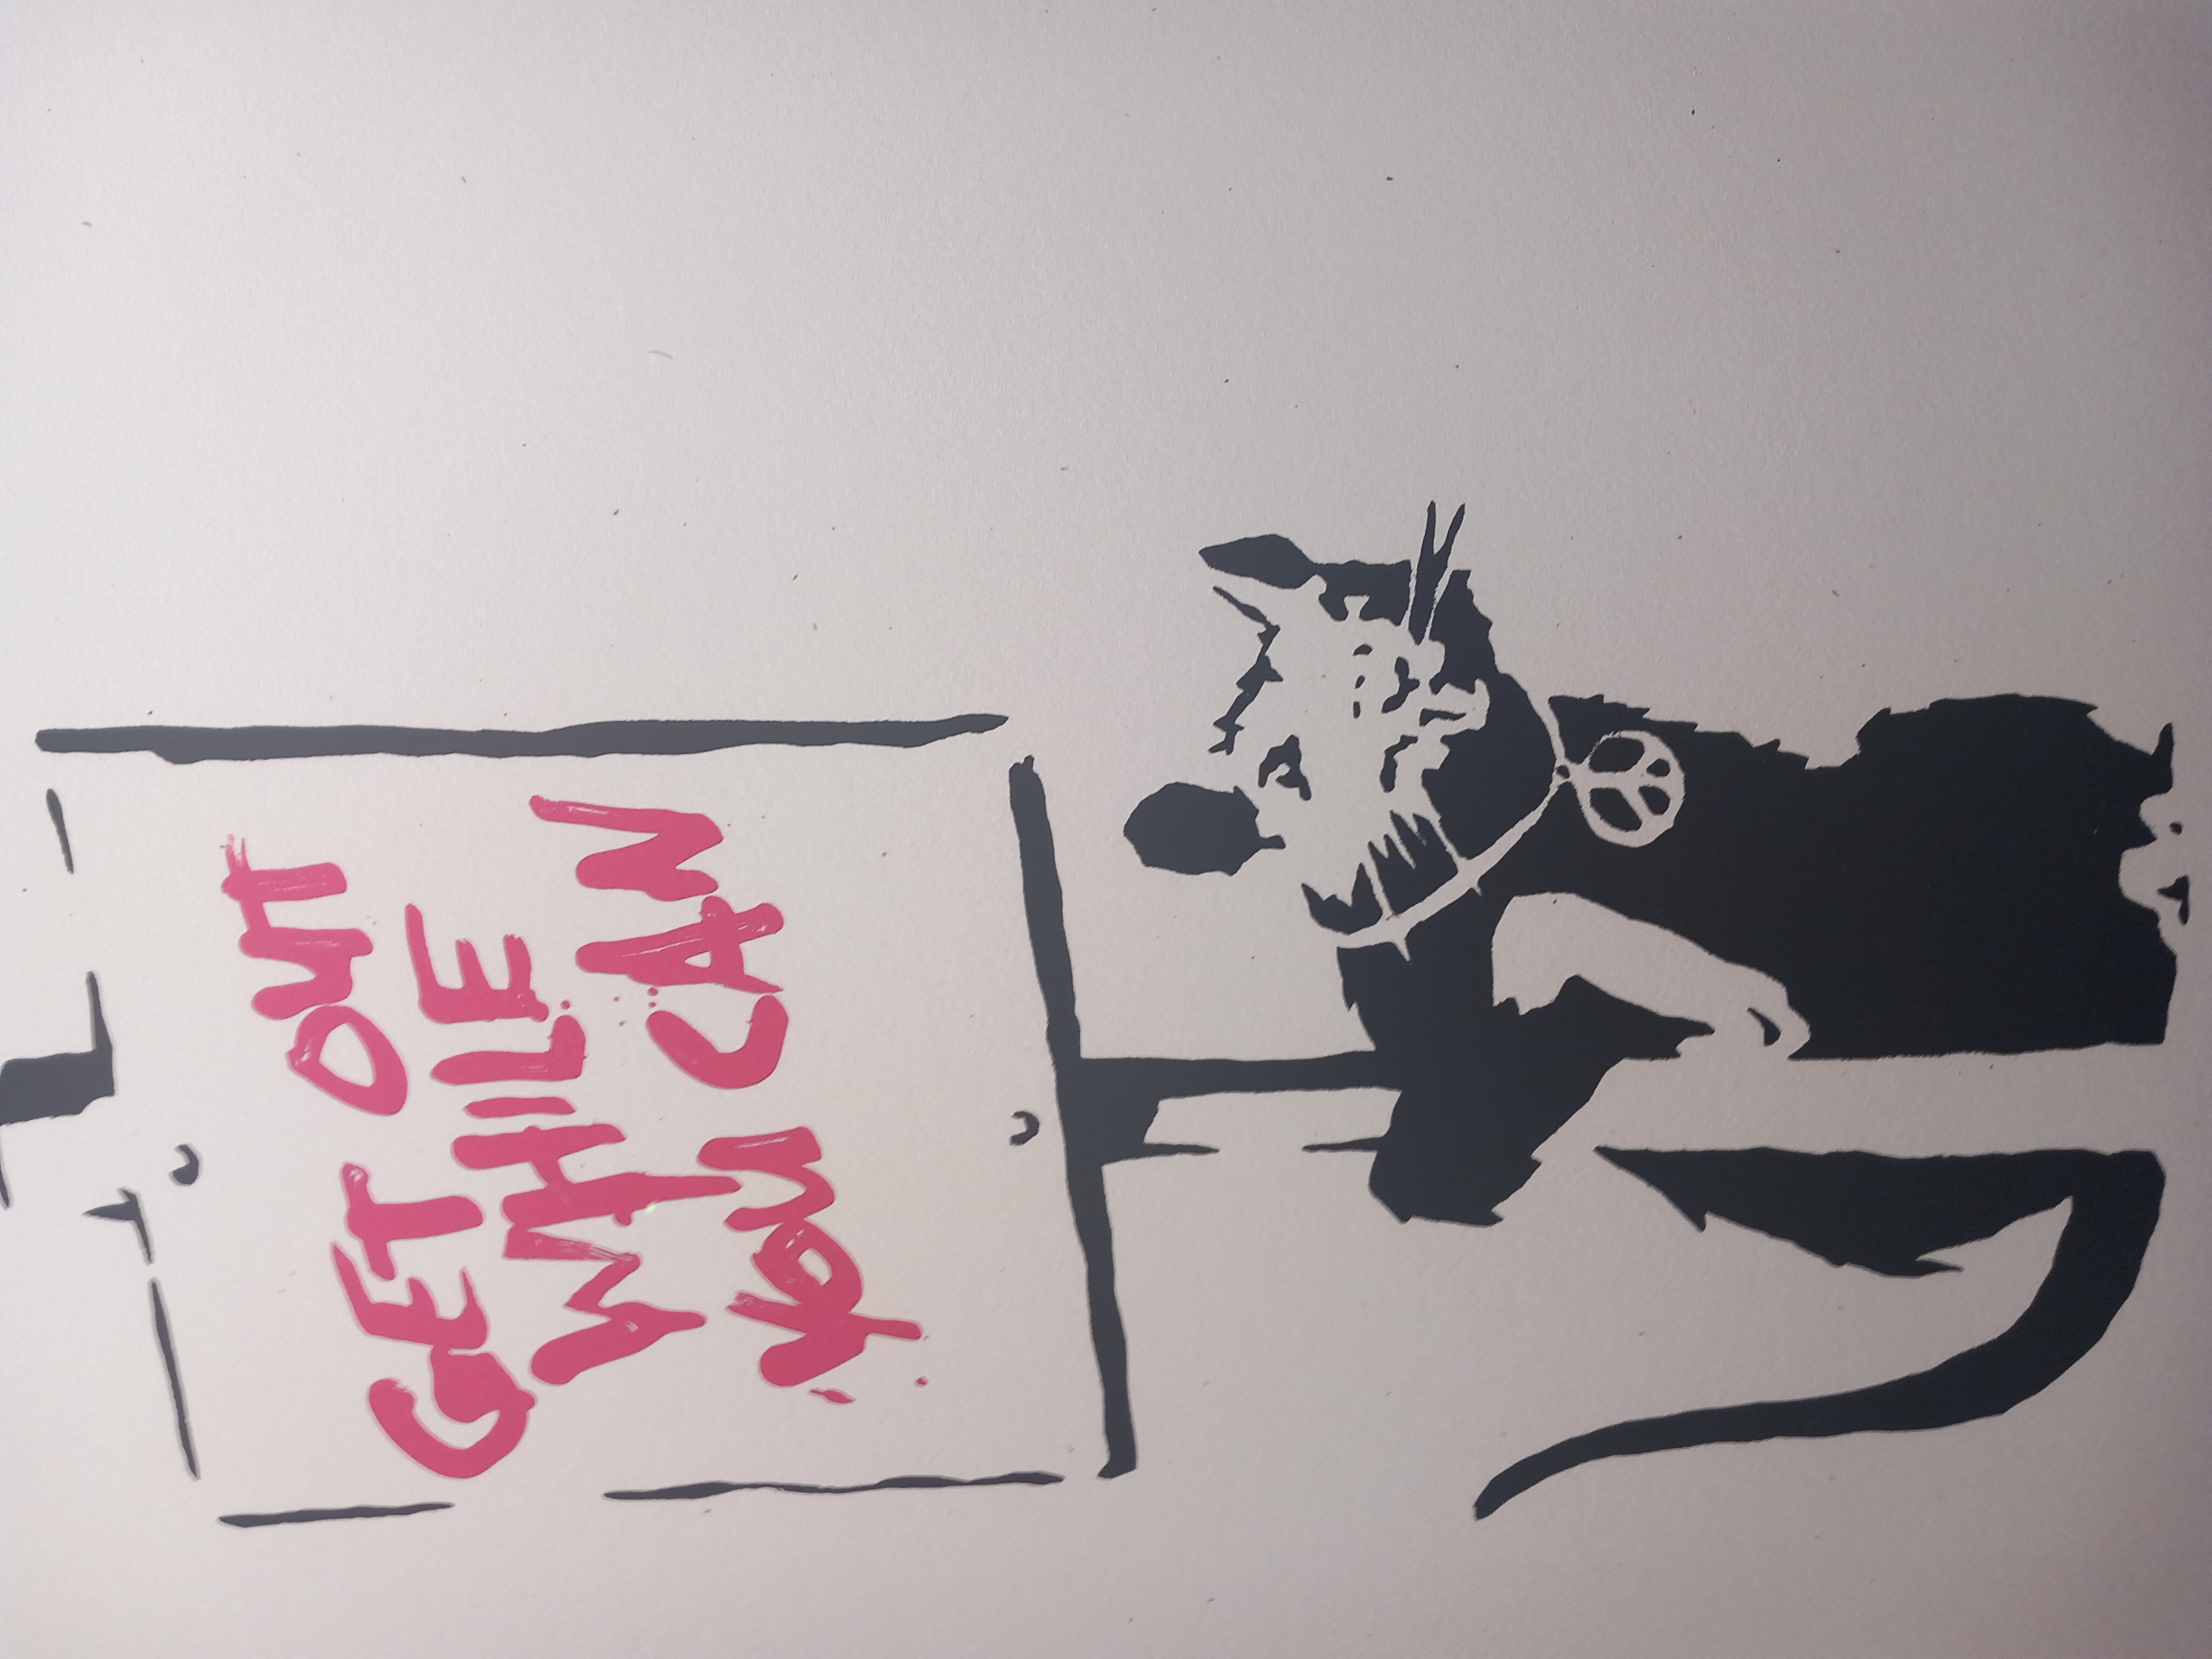 GET OUT
WHILE
YOU CAN